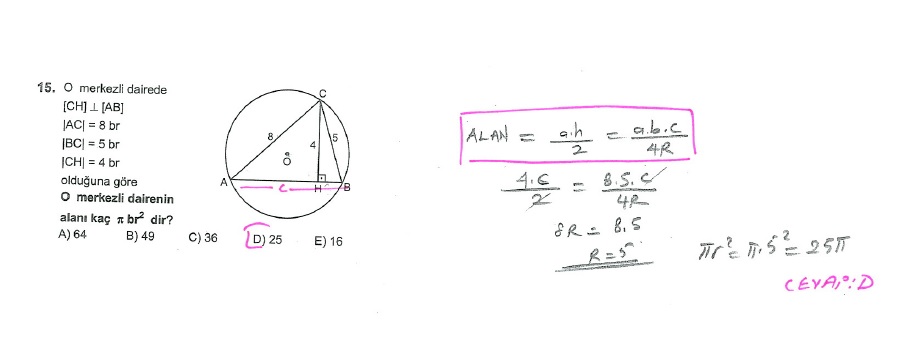 15. O merkezli dairede
[CH] ⊥ [AB]
|AC| = 8 br
|BC| = 5 br
|CH| = 4 br
olduğuna göre
O merkezli dairenin
alanı kaç π br² dir?
A) 64 B) 49 C) 36 D) 25 E) 16
C
8
4
5
O
A
c
H
B
ALAN = a.h/2 = a.b.c/4R
4.c/2 = 8.5.c/4R
8R = 8.5
R = 5
πr² = π.5² = 25π
CEVAP: D